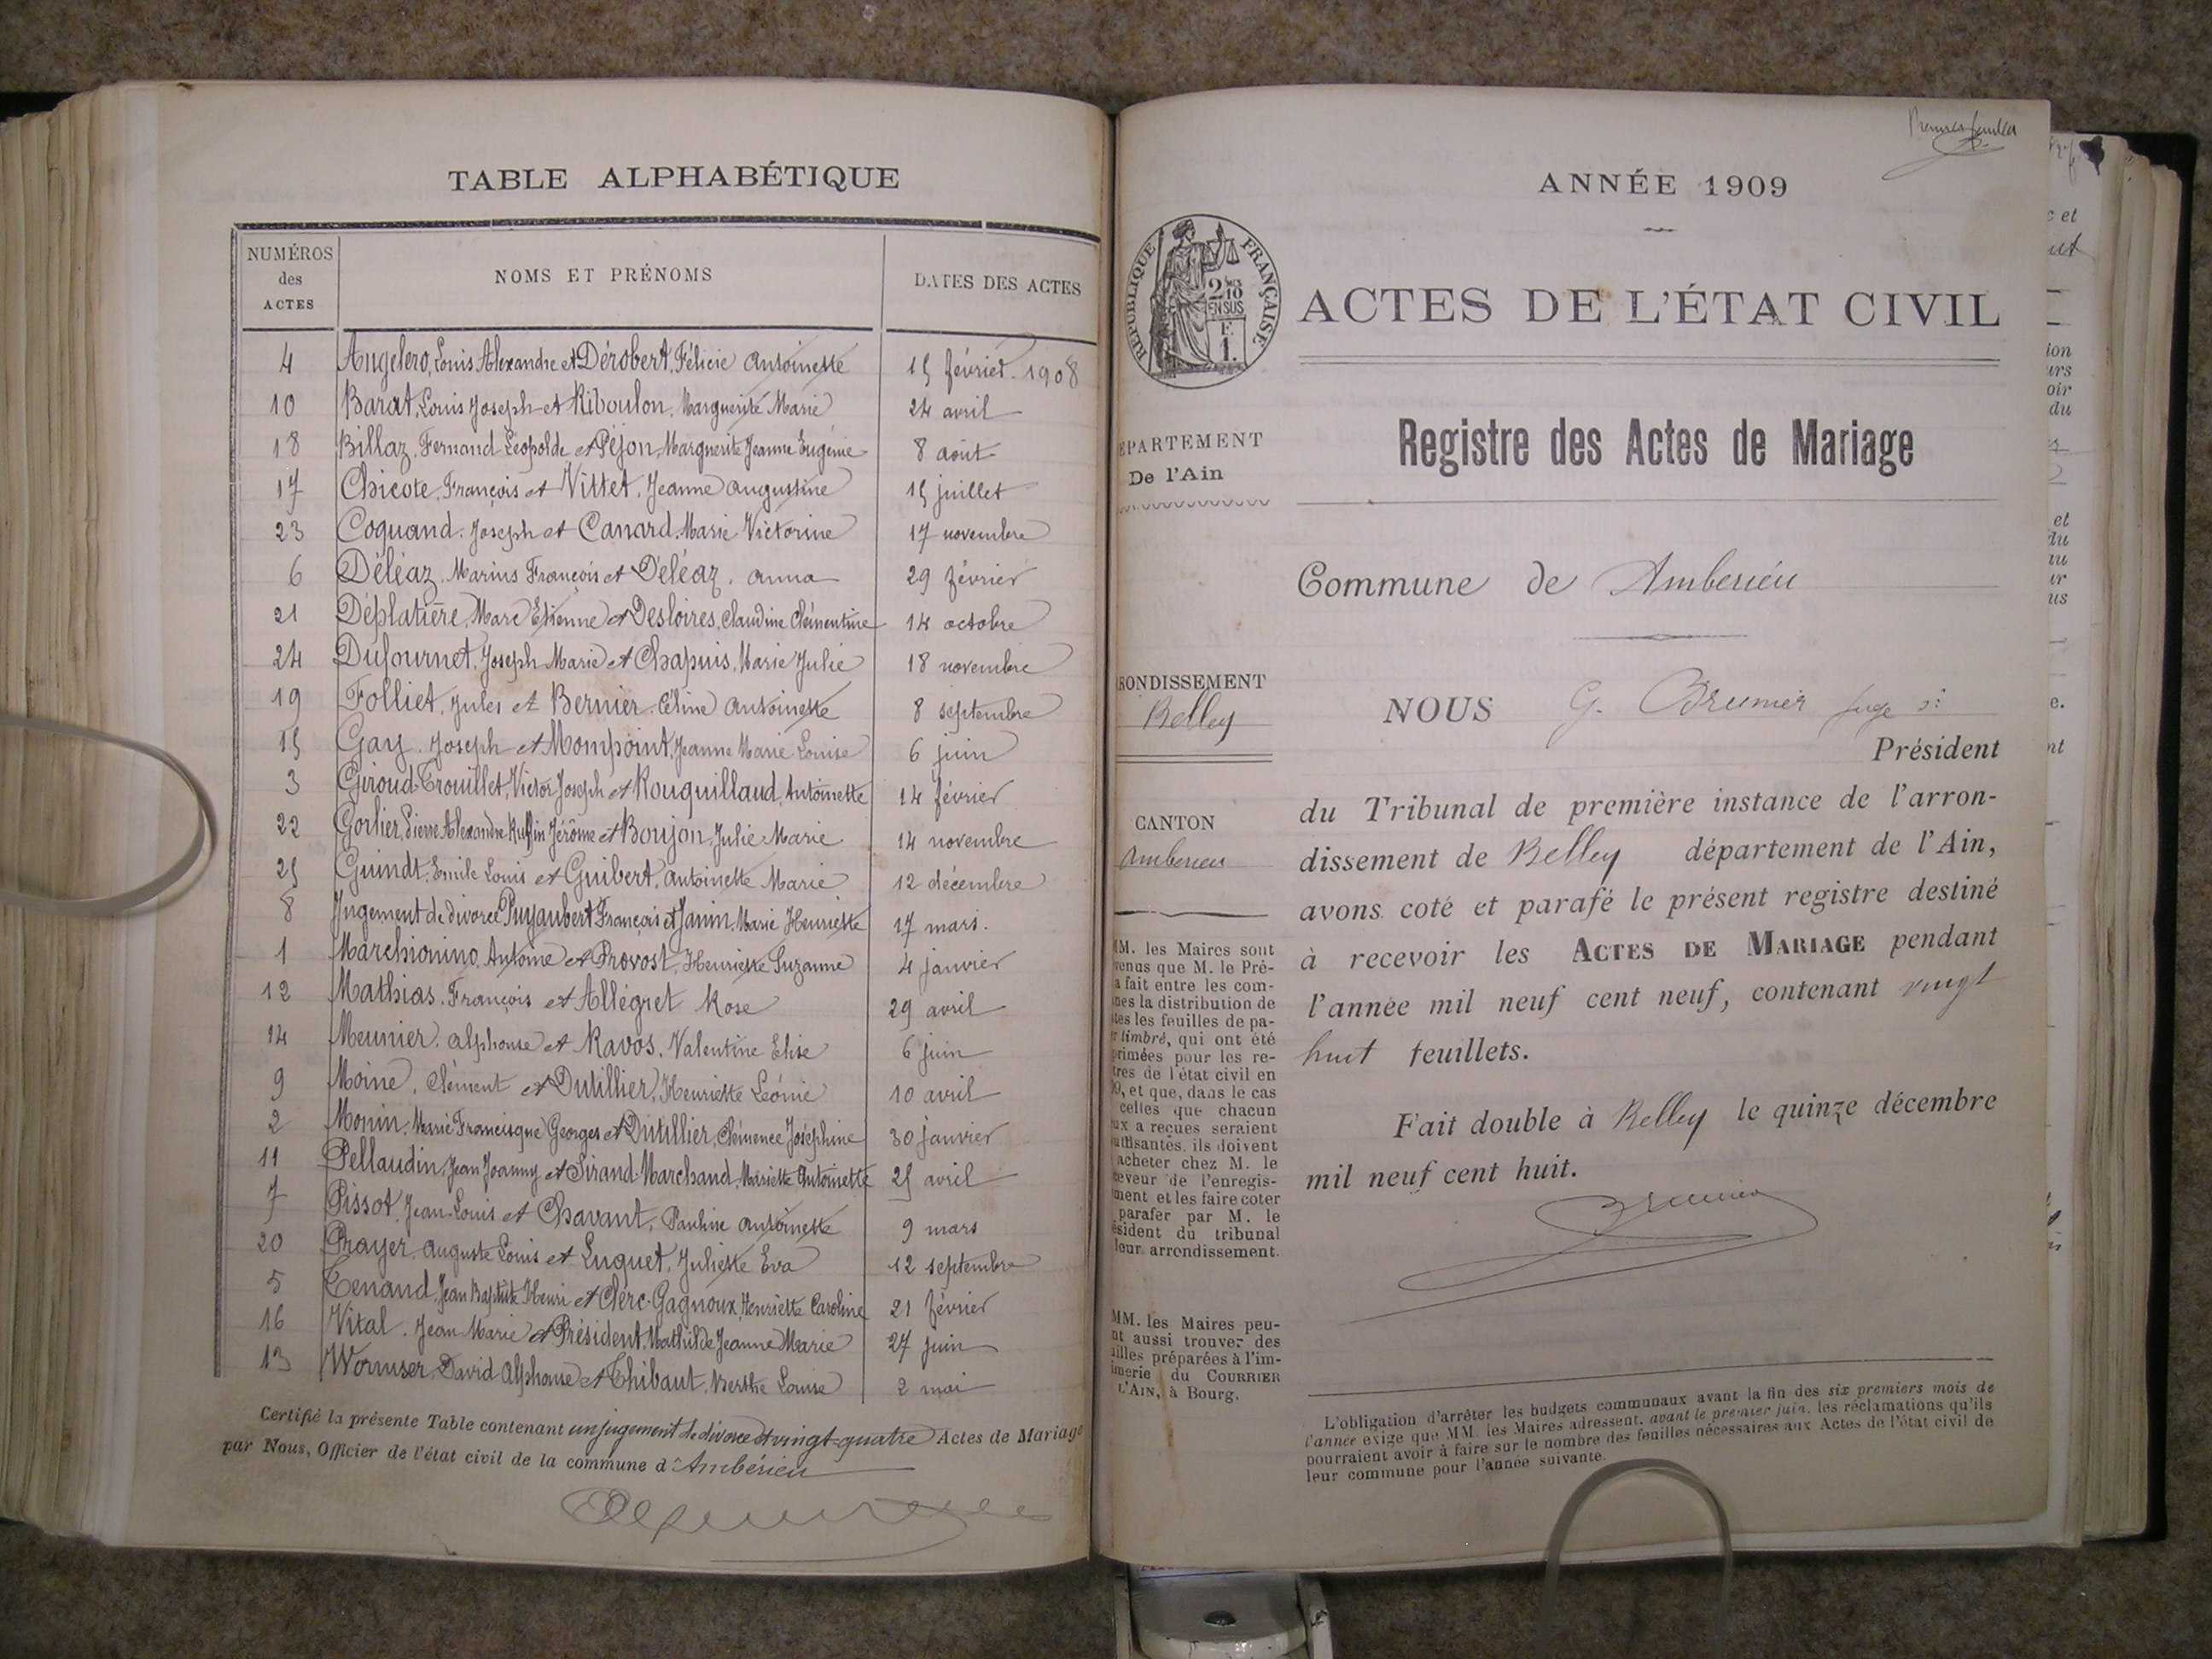 TABLE ALPHABÉTIQUE
NUMÉROS des ACTES
NOMS ET PRÉNOMS
DATES DES ACTES
4 Angelero, Louis Alexandre et Dérobert, Félicie Antoinette 15 février 1908
10 Barat, Louis Joseph et Riboulon, Marguerite Marie 24 avril
18 Billaz, Fernand Léopolde et Péjon, Marguerite Jeanne Eugénie 8 août
17 Chicote, François et Vittet, Jeanne Augustine 15 juillet
23 Coquand, Joseph et Canard, Marie Victorine 17 novembre
6 Déléaz, Marius François et Déléaz, Anna 29 février
21 Déplatière, Marc Etienne et Desloires, Claudine Clémentine 14 octobre
24 Dufournet, Joseph Marie et Chapuis, Marie Julie 18 novembre
19 Folliet, Jules et Bernier, Céline Antoinette 8 septembre
15 Gay, Joseph et Mompoint, Jeanne Marie Louise 6 juin
3 Giroud-Trouillet, Victor Joseph et Rouquillaud, Antoinette 14 février
22 Gorlier, Pierre Alexandre Ruffin Jérôme et Boujon, Julie Marie 14 novembre
25 Guindt, Emile Louis et Guibert, Antoinette Marie 12 décembre
8 Jugement de divorce Puyaubert François et Janin, Marie Henriette 17 mars.
1 Marchionino, Antoine et Provost, Henriette Suzanne 4 janvier
12 Mathias, François et Allégret Rose 29 avril
14 Meunier, Alphonse et Ravos, Valentine Elise 6 juin
9 Moine, Clément et Dutillier, Henriette Léonie 10 avril
2 Monin, Marie Francisque Georges et Dutillier, Clémence Joséphine 30 janvier
11 Pellaudin, Jean Joanny et Sirand-Marchand, Mariette Antoinette 25 avril
7 Pissot, Jean-Louis et Chavant, Pauline Antoinette 9 mars
20 Prayer, Auguste Louis et Luquet, Juliette Eva 12 septembre
5 Tenand, Jean Baptiste Henri et Clerc-Gagnoux, Henriette Caroline 21 février
16 Vital, Jean Marie et Président, Mathilde Jeanne Marie 27 juin
13 Wormser, David Alphonse et Thibaut, Berthe Louise 2 mai
Certifié la présente Table contenant un jugement de divorce et vingt-quatre Actes de Mariage
par Nous, Officier de l'état civil de la commune d'Ambérieu
ANNÉE 1909
RÉPUBLIQUE FRANÇAISE
2/10 EN SUS
ACTES DE L'ÉTAT CIVIL
Registre des Actes de Mariage
ÉPARTEMENT
De l'Ain
RONDISSEMENT
Belley
CANTON
Ambérieu
MM. les Maires sont
venus que M. le Pré-
a fait entre les com-
nes la distribution de
tes les feuilles de pa-
r timbré, qui ont été
primées pour les re-
tres de l'état civil en
9, et que, dans le cas
celles que chacun
ux a reçues seraient
uffisantes, ils doivent
acheter chez M. le
ceveur de l'enregis-
ment et les faire coter
parafer par M. le
ésident du tribunal
leur arrondissement.
MM. les Maires peu-
nt aussi trouver des
illes préparées à l'im-
imerie du COURRIER
L'AIN, à Bourg.
Commune de Ambérieu
NOUS G. Brunier Juge
Président
du Tribunal de première instance de l'arron-
dissement de Belley département de l'Ain,
avons coté et parafé le présent registre destiné
à recevoir les ACTES DE MARIAGE pendant
l'année mil neuf cent neuf, contenant vingt
huit feuillets.
Fait double à Belley le quinze décembre
mil neuf cent huit.
Brunier
L'obligation d'arrêter les budgets communaux avant la fin des six premiers mois de
l'année exige que MM. les Maires adressent, avant le premier juin, les réclamations qu'ils
pourraient avoir à faire sur le nombre des feuilles nécessaires aux Actes de l'état civil de
leur commune pour l'année suivante.